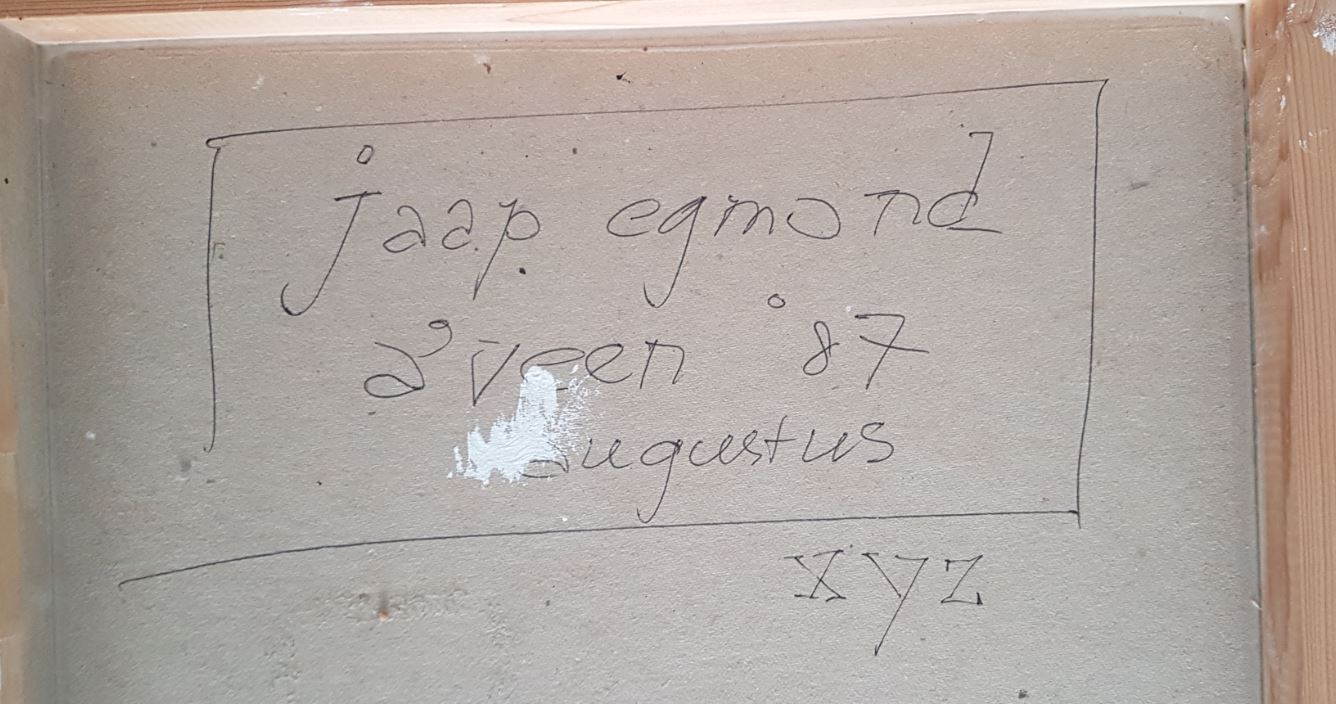 jaap egmond
a'veen '87
augustus
xyz